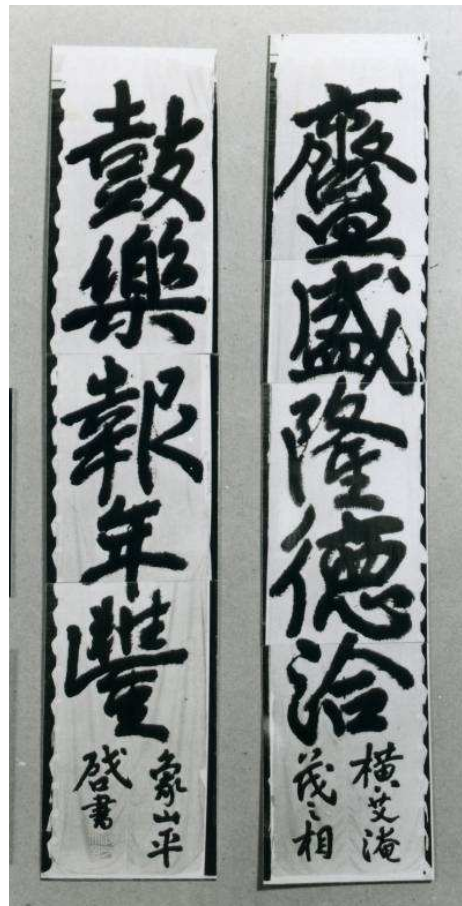 齍盛隆德洽
橫艾淹
茂之相
鼓樂報年豐
象山平
啓書